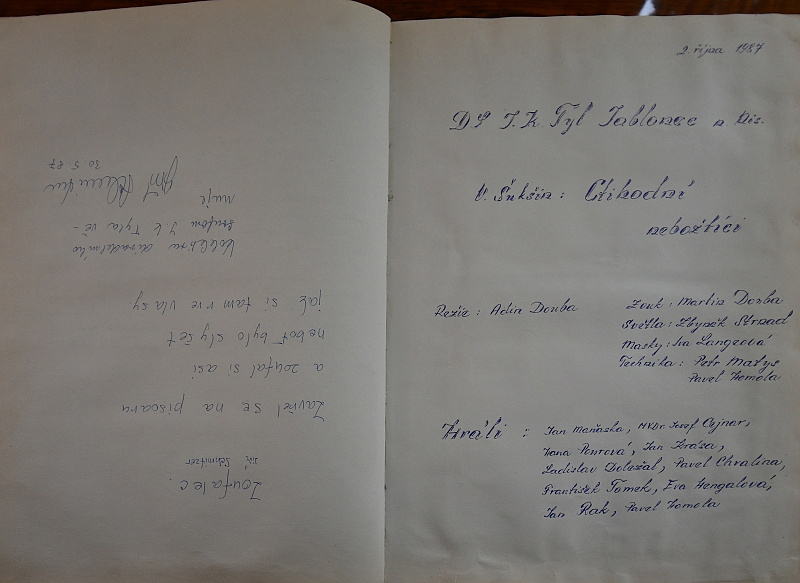 Zoufalec
Jiří Schmitzer
Zavřel se na pisoaru
a zoufal si asi
neboť bylo slyšet
jak si tam rve vlasy.
divadelního
souboru J. K. Tyla vě-
nuje
30. 5. 87
2. října 1987
DS J. K. Tyl Jablonec n Nis.
V. Šukšin: Ctihodní
nebožtíci
Režie: Adin Douba
Zvuk: Martin Douba
Světla: Zbyněk Strnad
Masky: Iva Langrová
Technika: Petr Matys
Pavel Homola
Hráli:
Jan Maňaska, MVDr Josef Cejnar,
Hana Pourová, Jan Krása,
Ladislav Doležal, Pavel Chvalina,
František Tomek, Eva Hengalová,
Jan Rak, Pavel Homola